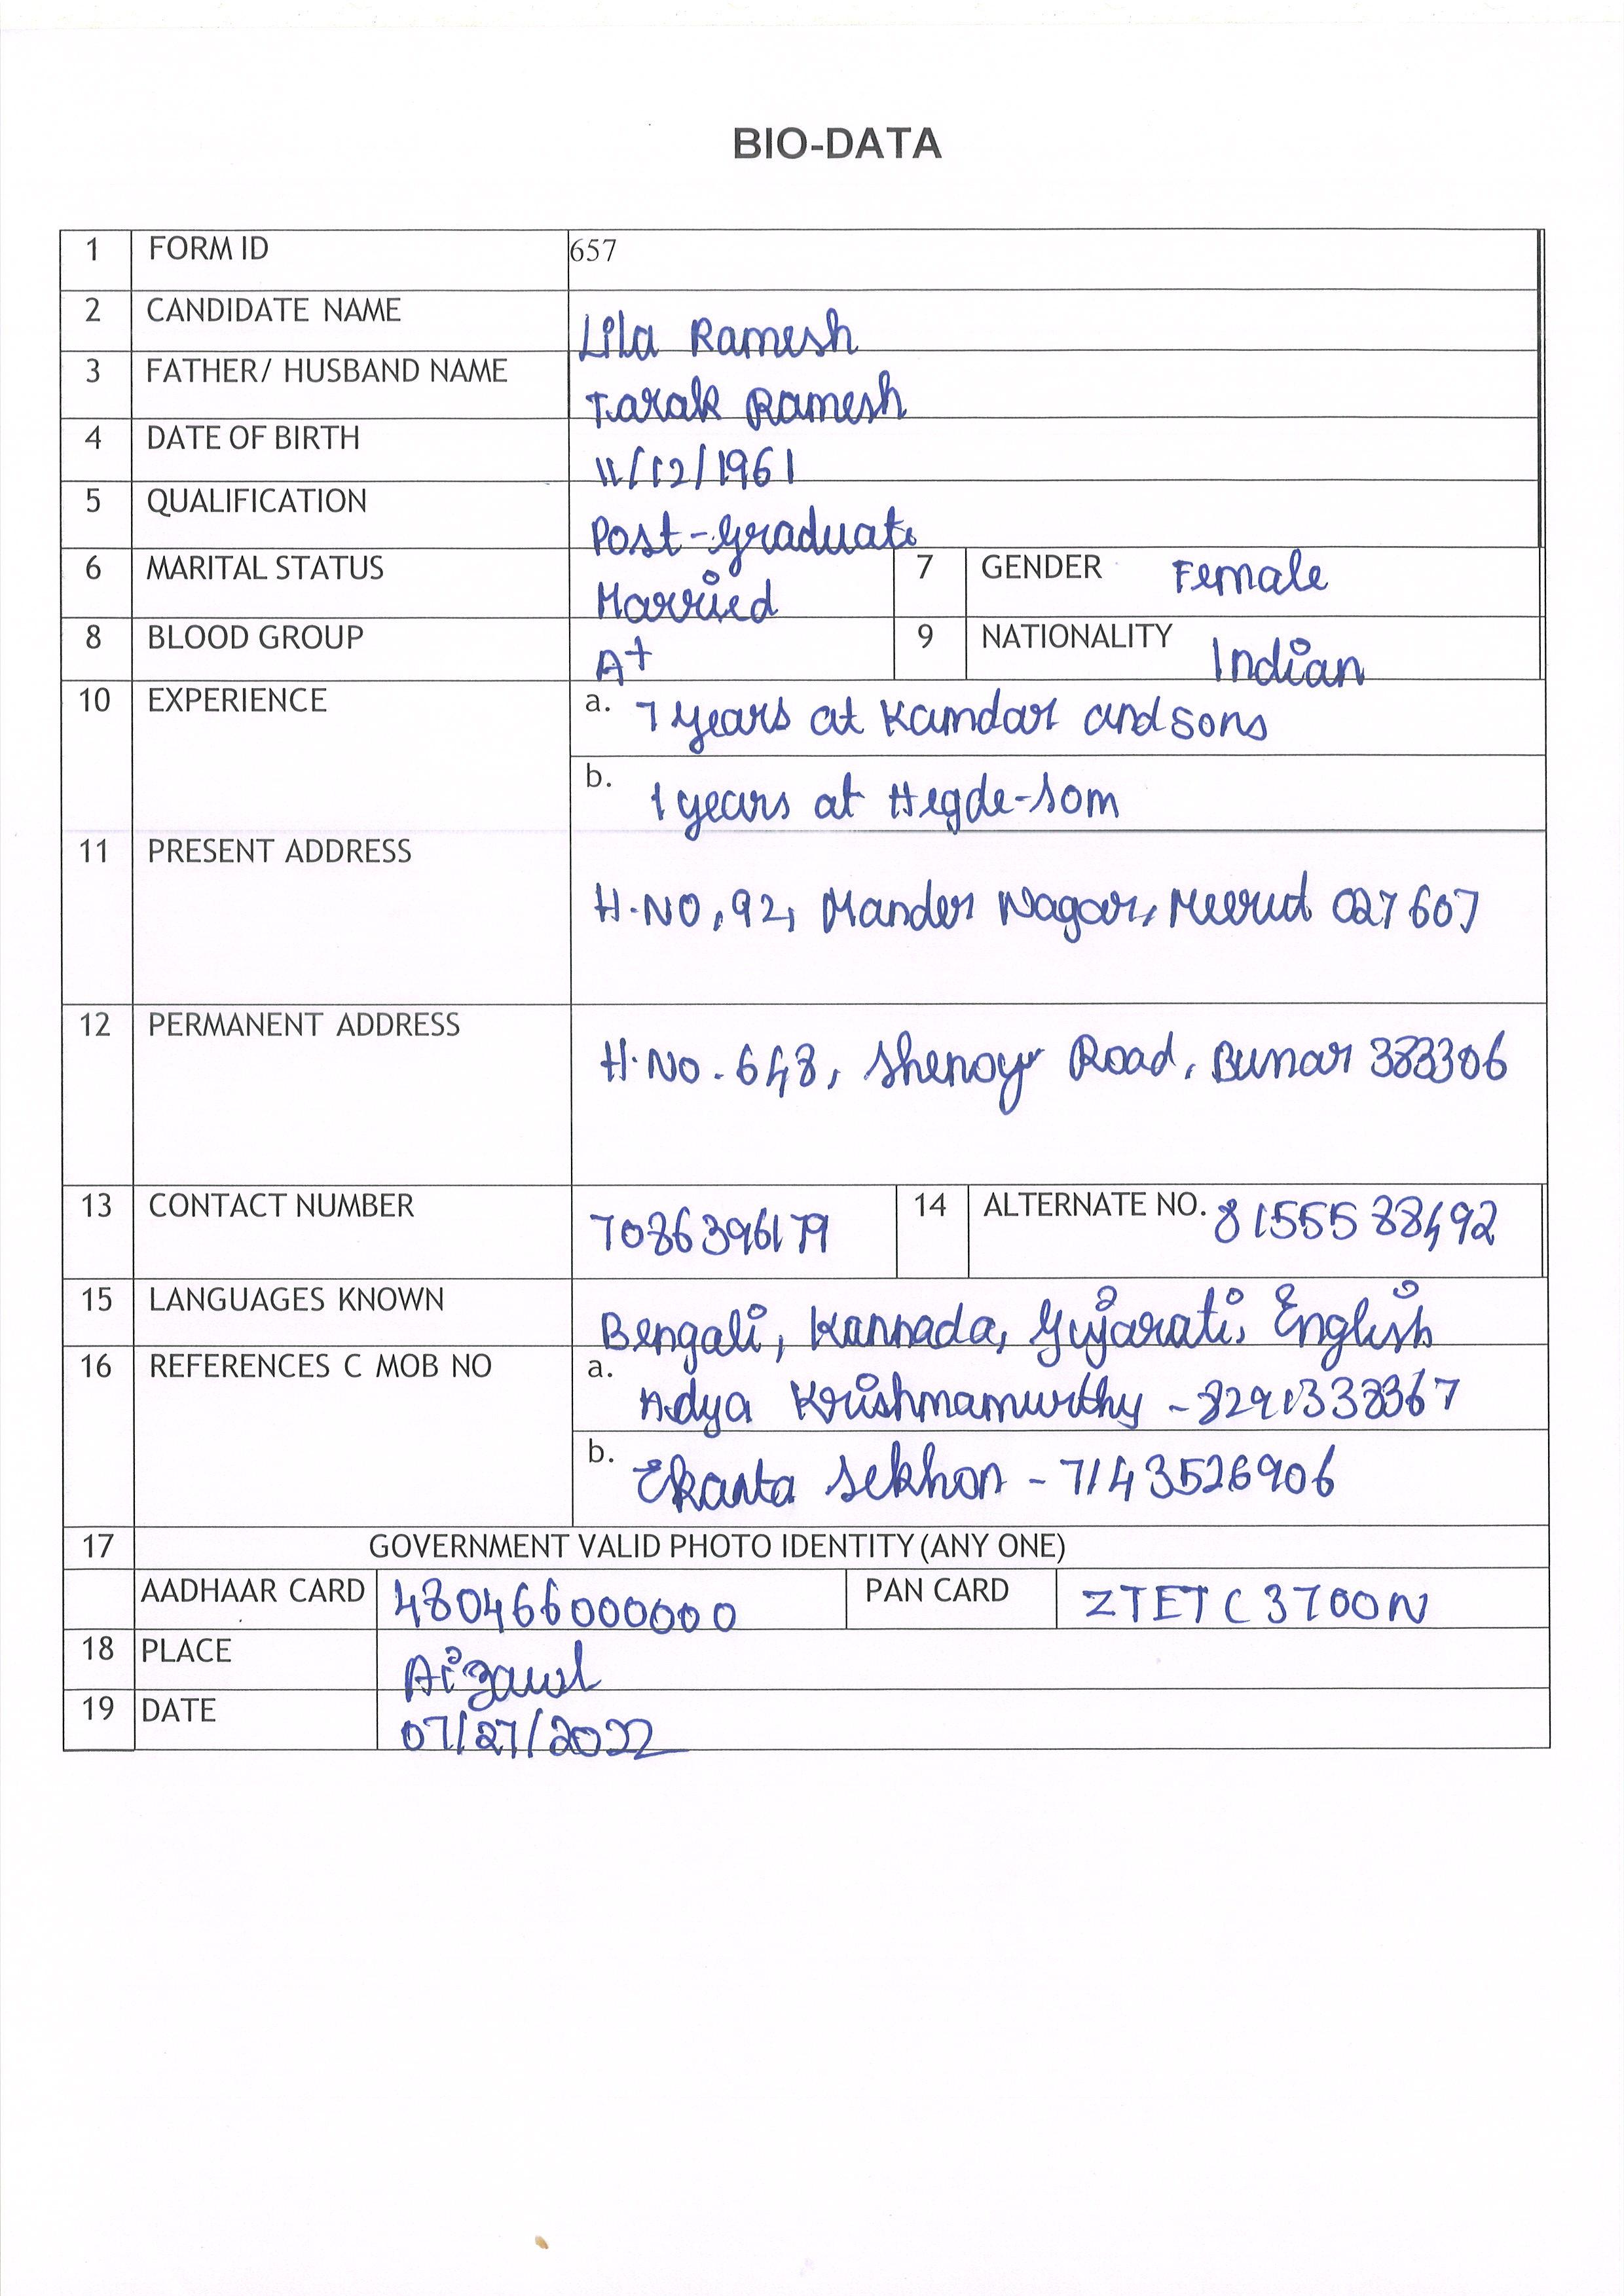 BIO-DATA
1 FORM ID 657
2 CANDIDATE NAME Lila Ramesh
3 FATHER/ HUSBAND NAME Tarak Ramesh
4 DATE OF BIRTH 11/12/1961
5 QUALIFICATION Post-graduate
6 MARITAL STATUS Married 7 GENDER Female
8 BLOOD GROUP A+ 9 NATIONALITY Indian
10 EXPERIENCE a. 7 years at Kamdar and sons
b. 1 years at Hegde-Som
11 PRESENT ADDRESS H.NO, 92, Mander Nagar, Meerut 027607
12 PERMANENT ADDRESS H.No. 648, Shenoy Road, Bunar 383306
13 CONTACT NUMBER 7086396179 14 ALTERNATE NO. 8155588492
15 LANGUAGES KNOWN Bengali, Kannada, Gujarati, English
16 REFERENCES C MOB NO a. Adya Krishnamurthy - 8291338367
b. Ekanta Sekhon - 7143526906
17 GOVERNMENT VALID PHOTO IDENTITY (ANY ONE)
AADHAAR CARD 480466000000 PAN CARD ZTETC3700N
18 PLACE Aizawl
19 DATE 07/27/2022